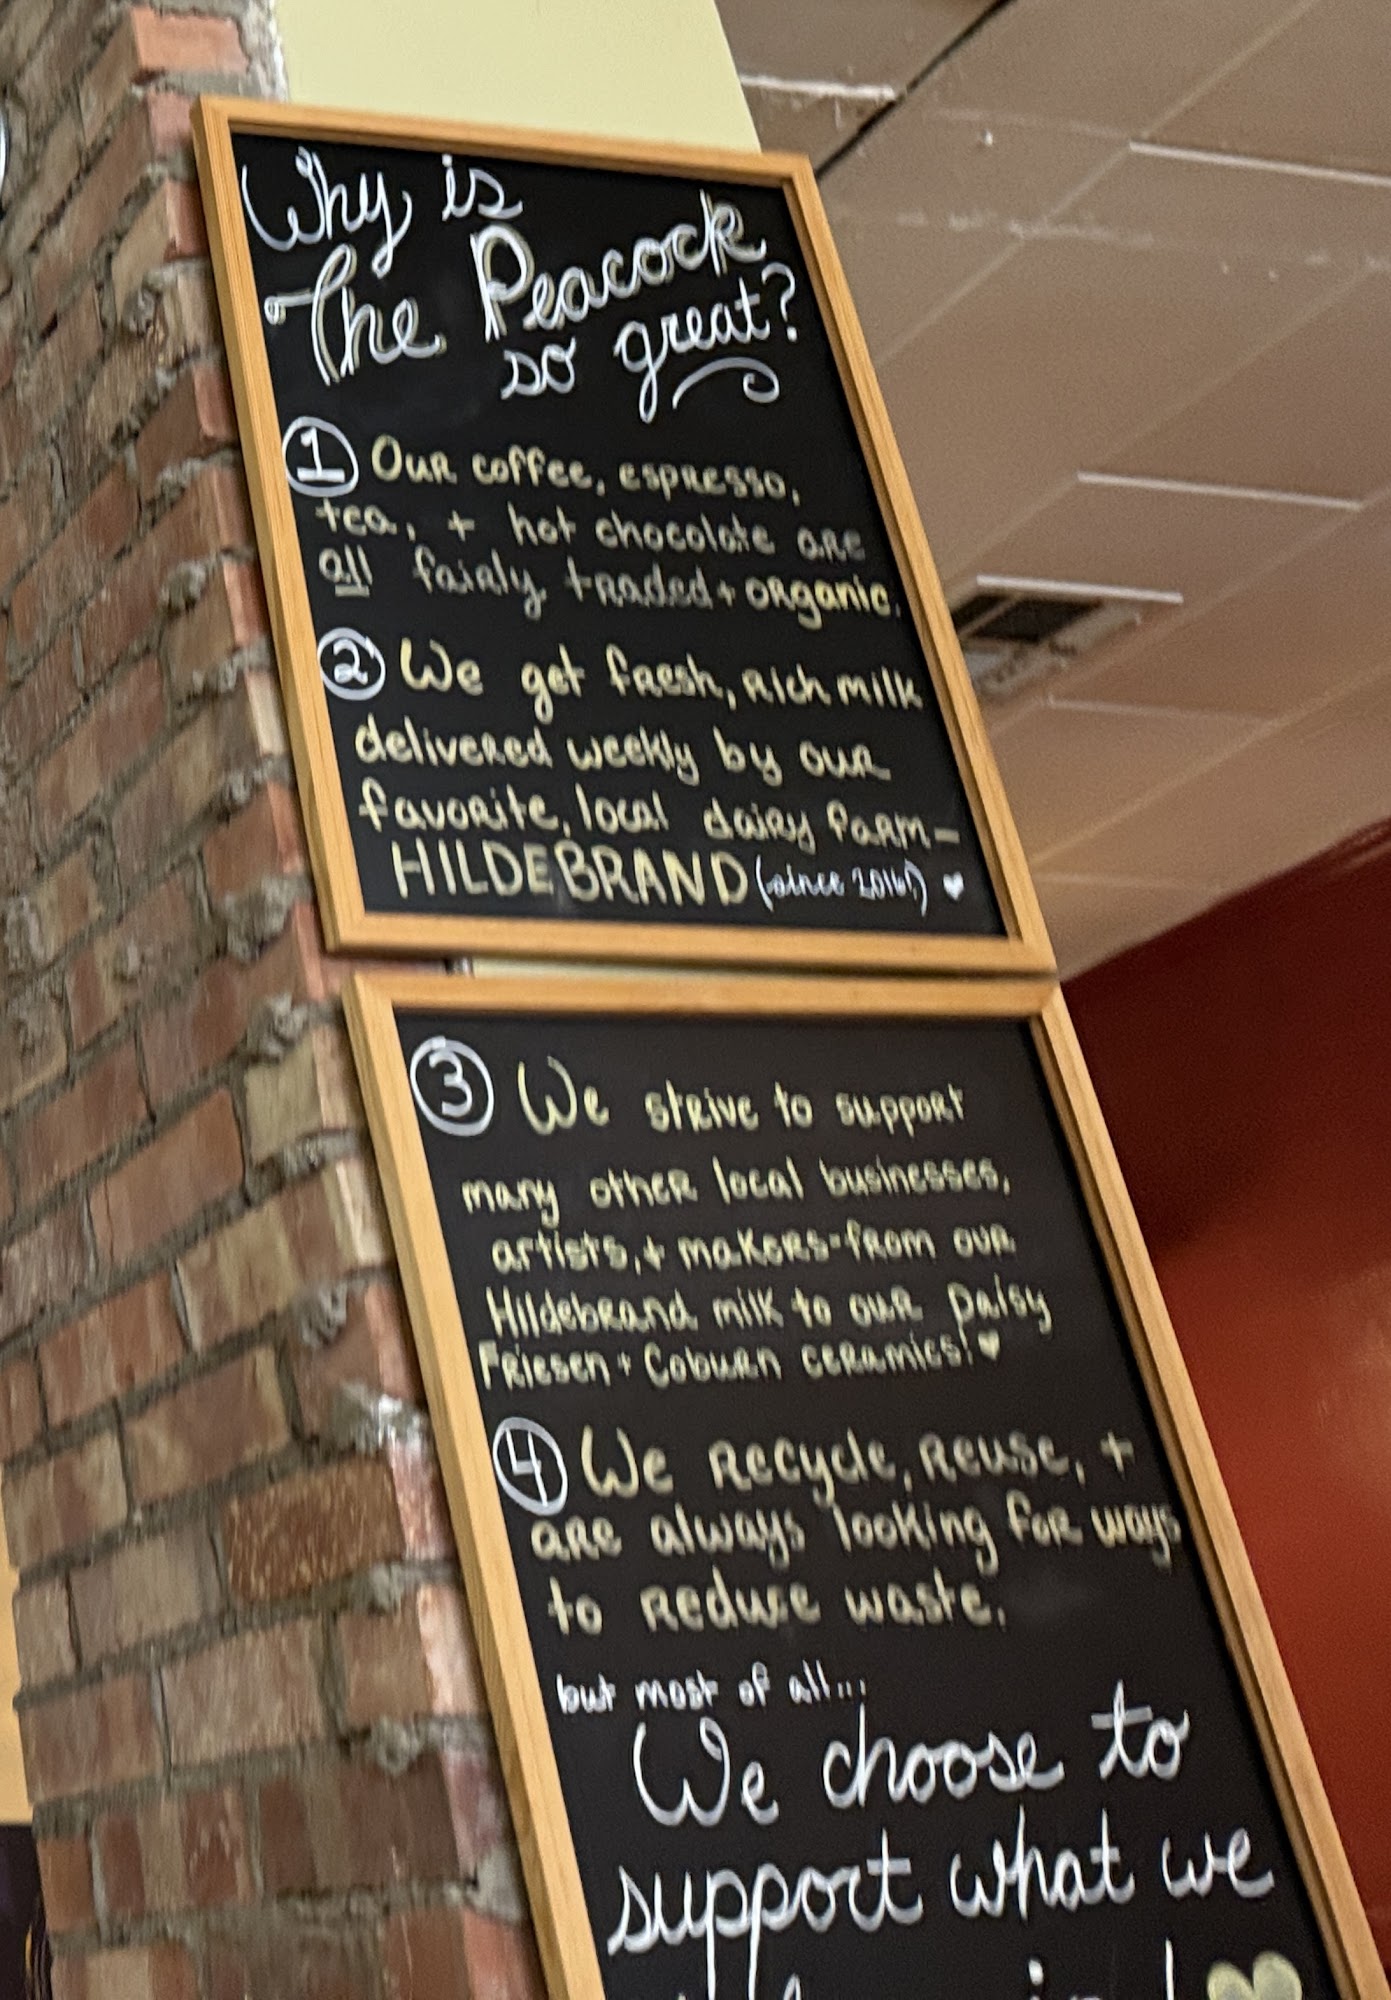 Why is
The Peacock
so great?
1 Our coffee, espresso,
tea, + hot chocolate are
all fairly traded + organic.
2 We get fresh, rich milk
delivered weekly by our
favorite, local dairy farm-
HILDEBRAND (since 2016!) ♥
3 We strive to support
many other local businesses,
artists, + makers-from our
Hildebrand milk to our Paisy
Friesen + Coburn ceramics! ♥
4 We recycle, reuse, +
are always looking for ways
to reduce waste.
but most of all...
We choose to
support what we